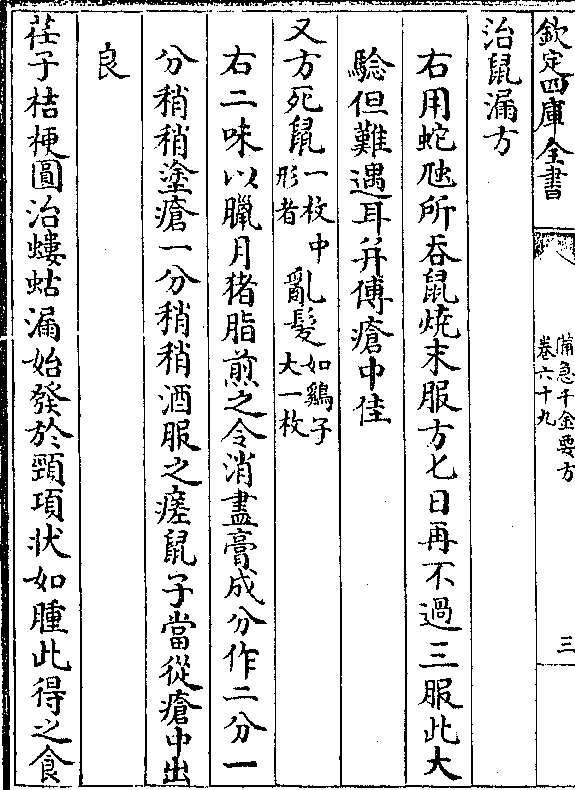 欽定四庫全書
備急千金要方
卷六十九
三
治鼠漏方
右用蛇虺所吞鼠燒末服方匕日再不過三服此大
驗但難遇耳并傅瘡中佳
又方死鼠一枚中形者亂髮如鷄子大一枚
右二味以臘月猪脂煎之令消盡膏成分作二分一
分稍稍塗瘡一分稍稍酒服之瘥鼠子當從瘡中出
良
荏子桔梗圓治螻蛄漏始發於頸項状如腫此得之食